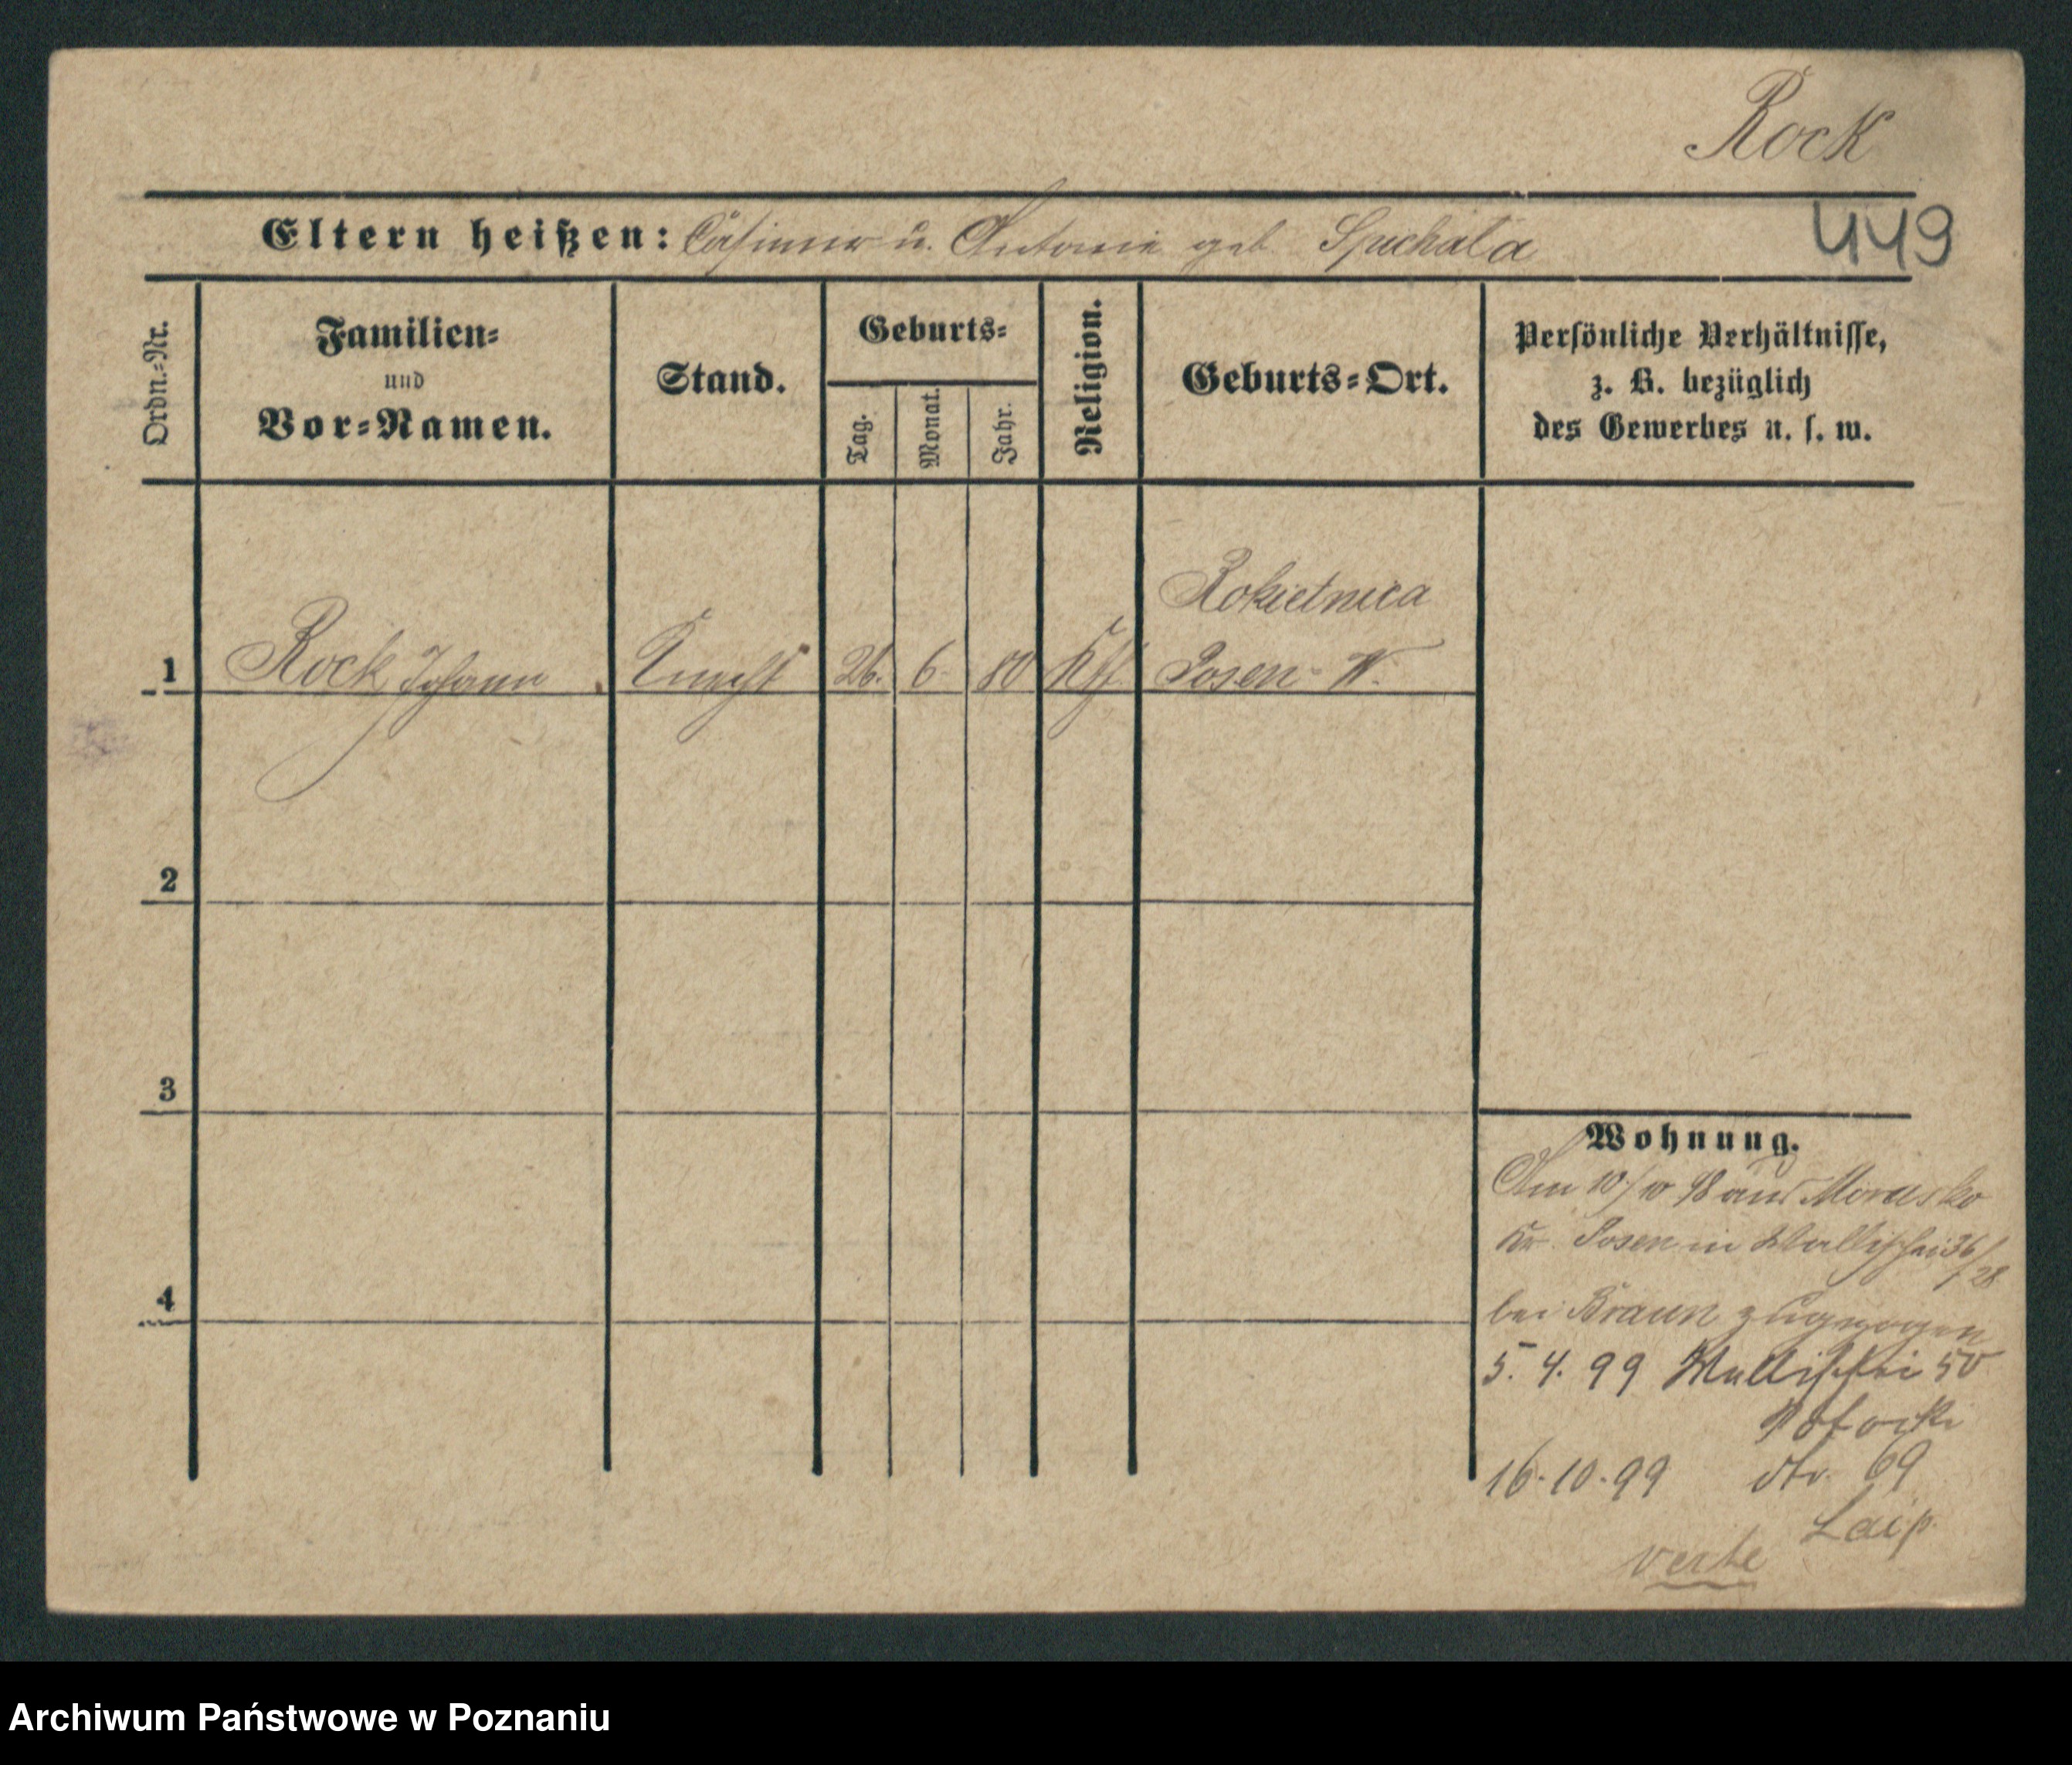 Rock
Eltern heißen: Casimir u. Antonie geb. Spuchala
449
Ordn.-Nr.
Familien-
und
Vor-Namen.
Stand.
Geburts-
Tag.
Monat.
Jahr.
Religion.
Geburts-Ort.
Persönliche Verhältnisse,
z. B. bezüglich
des Gewerbes u. s. w.
Rokietnica
1 Rock Johann Knecht 26. 6. 80 Kth. Posen-W.
2
3
4
Wohnung.
Am 10/10 98 aus Morasko
Kr. Posen in Wallischei 36/28
bei Braun zugezogen
5. 4. 99 Wallischei 50
Potocki
16-10-99 dto. 69
verte
Archiwum Państwowe w Poznaniu